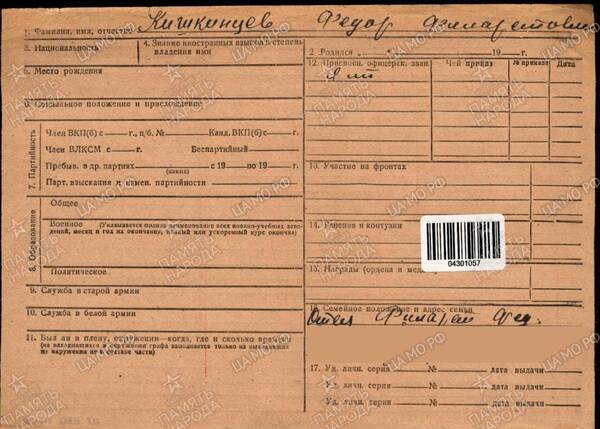 1. Фамилия, имя, отчество Кишкинцев Федор Филаретович
2 Родился „ “ 19 г.
3. Национальность
4. Знание иностранных языков и степень владения ими
5. Место рождения
6. Социальное положение и происхождение
7. Партийность
Член ВКП(б) с г., п/б. № Канд. ВКП(б) с г.
Член ВЛКСМ с г. Беспартийный
Пребыв. в др. партиях с 19 по 19 г.
(каких)
Парт. взыскания и измен. партийности
8. Образование
Общее
Военное (Указывается полное наименование всех военно-учебных заведений, месяц и год их окончания, полный или ускоренный курс окончил)
Политическое
9. Служба в старой армии
10. Служба в белой армии
11. Был ли в плену, окружении—когда, где и сколько времени
(на находившихся в окружении графа заполняется только на вышедших из окружения не в составе части)
12. Присвоен. офицерск. зван. Чей приказ № приказа Дата
13. Участие на фронтах
14. Ранения и контузии
04301057
15. Награды (ордена и мед
16. Семейное положение и адрес семьи
Отец Филарет Фед.
17. Уд. личн. серия № дата выдачи
Уд. личн. серия № дата выдачи
Уд. личн. серия № дата выдачи
ПАМЯТЬ НАРОДА
ЦАМО.РФ